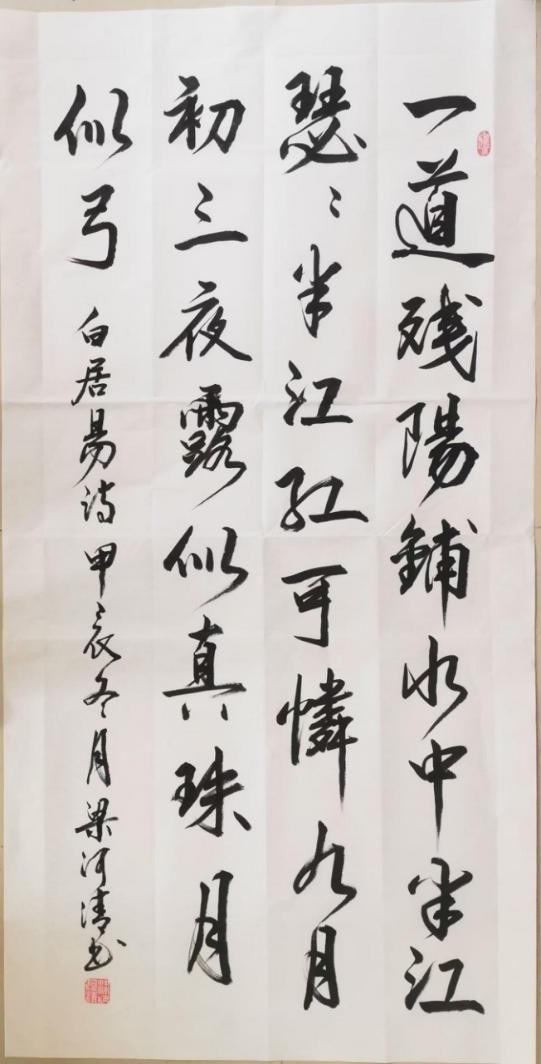 一道残陽鋪水中半江
瑟〻半江紅可憐九月
初三夜露似真珠月
似弓
白居易詩甲辰冬月梁河清書